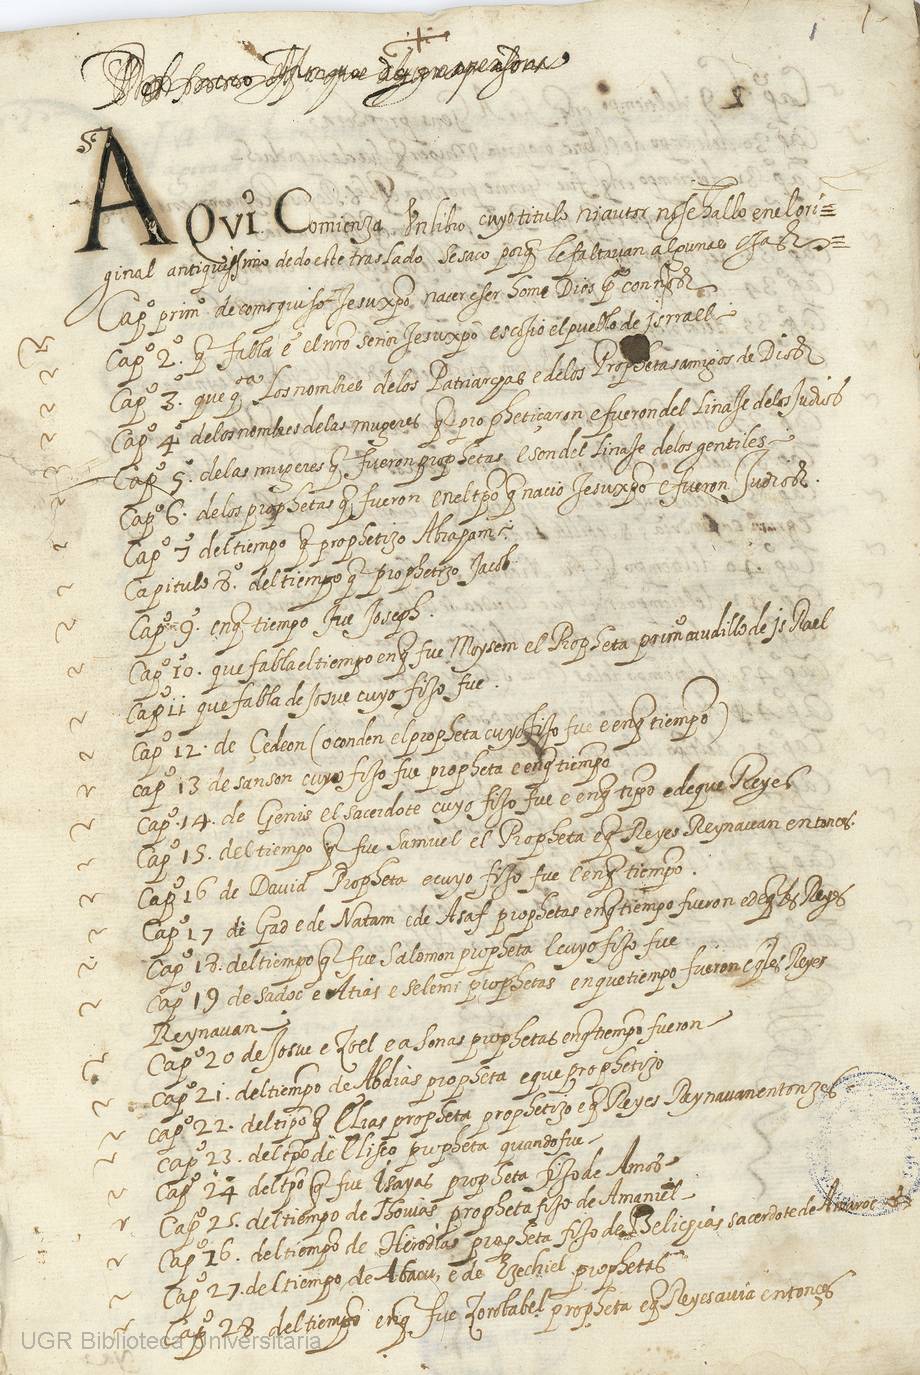 1
AQVI Comienza Un libro cuyo titulo ni autor no se hallo en el ori=
ginal antiquissimo dedo este traslado se saco porq̃ le faltauan algunas
Capº primº de como quiso Jesuxpõ nacer e ser home Dios
Capº 2º. q̃ fabla ẽ el nrõ señor Jesuxpõ escojio el pueblo de jsrrael
Capº 3º. que Los nombres de los Patriarchas e de los Prophetas amigos de Dios
Capº 4º de los nombres de las mugeres q̃ propheticaron e fueron del Linaje de los Judios
Capº 5º. de las mugeres q̃ fueron prophetas e son del Linaje de los gentiles
Capº 6º. de los prophetas q̃ fueron en el tpõ q̃ nacio Jesuxpõ e fueron Judios.
Capº 7 del tiempo q̃ prophetizo Abraham
Capitulo 8º. del tiempo q̃ prophetizo Jacob
Capº 9º. enq̃ tiempo fue Joseph.
Capº 10. que fabla el tiempo en q̃ fue Moysem el Propheta primº caudillo de jsRael
Capº 11 que fabla de Josue cuyo fijo fue.
Capº 12. de Gedeon (o conden el propheta cuyo fijo fue e enq̃ tiempo)
Capº 13 de sanson cuyo fijo fue propheta e enq̃ tiempo
Capº. 14. de Genis el sacerdote cuyo fijo fue e enq̃ tipõ e de que Reyes
Capº 15. del tiempo q̃ fue Samuel el Propheta e q̃ Reyes Reynauan entonces.
Capº 16 de David Propheta e cuyo fijo fue e enq̃ tiempo.
Capº 17 de Gad e de Natam e de Asaf prophetas enq̃ tiempo fueron e de q̃ Reyes
Capº 18. del tiempo q̃ fue Salomon propheta e cuyo fijo fue
Capº 19 de sadoc e Atias e selemi prophetas en que tiempo fueron e q̃les Reyes
Reynauan
Capº 20 de Josue e Joel e a Jonas prophetas enq̃ tiempo fueron
Capº 21. del tiempo de Abdias propheta e que prophetizo
Capº 22. del tipõ q̃ Elias propheta prophetizo e q̃ Reyes Reynauan entonzes
Capº 23. del tpõ de Eliseo propheta quando fue
Capº 24 del tpõ q̃ fue Isayas propheta fijo de Amos
Capº 25. del tiempo de Thovias propheta fijo de Amaniel
Capº 26. del tiempo de Herodias propheta fijo de sacerdote de
Capº 27. del tiempo de Abacu, e de Ezechiel prophetas
Capº 28 del tiempo enq̃ fue Zorobabel propheta e q̃ Reyes auia entonces
UGR Biblioteca Universitaria